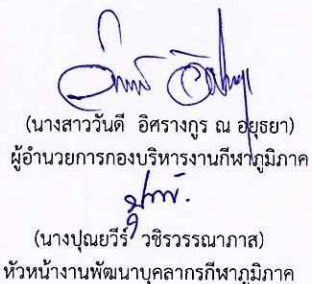 (นางสาววันดี อิศรางกูร ณ อยุธยา)
ผู้อำนวยการกองบริหารงานกีฬาภูมิภาค
(นางปุณยวีร์ วชิรวรรณาภาส)
หัวหน้างานพัฒนาบุคลากรกีฬาภูมิภาค